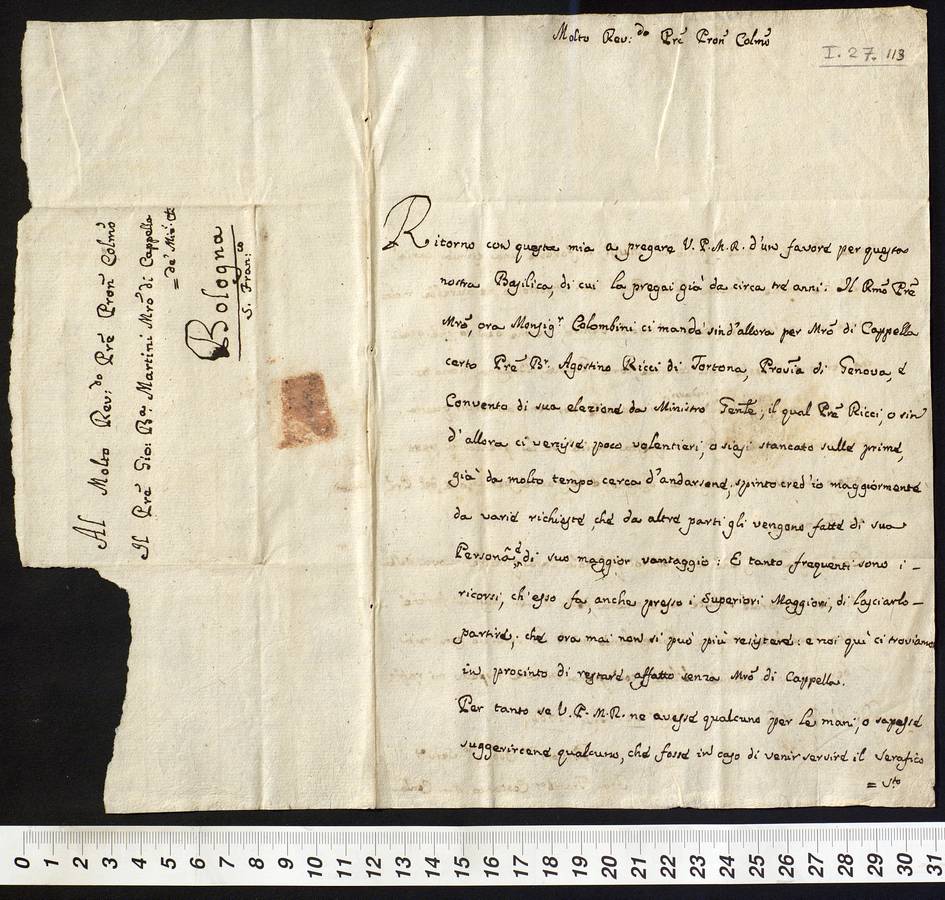 Molto Rev:do Pre Pron Colmo
I. 27. 113
Ritorno con questa mia a pregare V. P. M. R. d'un favore per questa
nostra Basilica, di cui la pregai già da circa tré anni. Il Rmo Pre
Mro, ora Monsigr Colombini ci mandò sin d'allora per Mro di Cappella
certo Pre Br Agostino Ricci di Tortona, Provia di Genova, e
Convento di sua elezione da Ministro Genle; il qual Pre Ricci, o sin
d'allora ci venisse poco volentieri, o siasi stancato sulle prime,
già da molto tempo cerca d'andarsene, spinto cred'io maggiormente
da varie richieste, che da altre parti gli vengono fatte di sua
Persona, e di suo maggior vantaggio: E tanto frequenti sono i
ricorsi, ch'esso fa, anche presso i Superiori Maggiori, di lasciarlo
partire; che ora mai non si può più resistere: e noi quì ci troviamo
in procinto di restare affatto senza Mro di Cappella.
Per tanto se V. P. M. R. ne avesse qualcuno per le mani, o sapesse
suggerircene qualcuno, che fosse in caso di venir servire il Serafico
= Sto
Al Molto Rev:do Pre Pron Colmo
Il Pre Gio: Ba Martini Mro di Cappella
= de' Min: Ci
Bologna
S. Fran:co
0 1 2 3 4 5 6 7 8 9 10 11 12 13 14 15 16 17 18 19 20 21 22 23 24 25 26 27 28 29 30 31